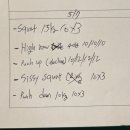 5/7
- Squat 15kg 10x3
- High row 10/10/10
- Push up (decline) 10/12/12/12
- Sissy squat 10x3
- Push down 10kg 10x3